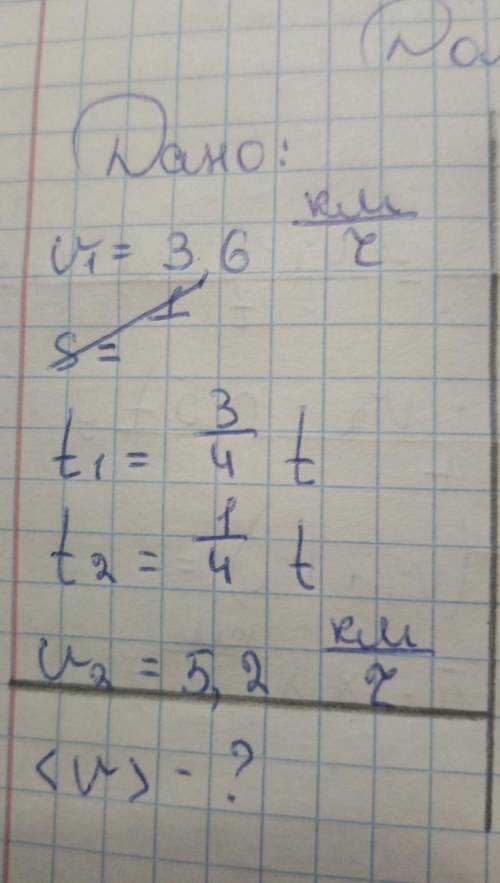 Да
Дано:
v₁ = 3,6 км/ч
s = 1
t₁ = 3/4 t
t₂ = 1/4 t
v₂ = 5,2 км/ч
<v> - ?